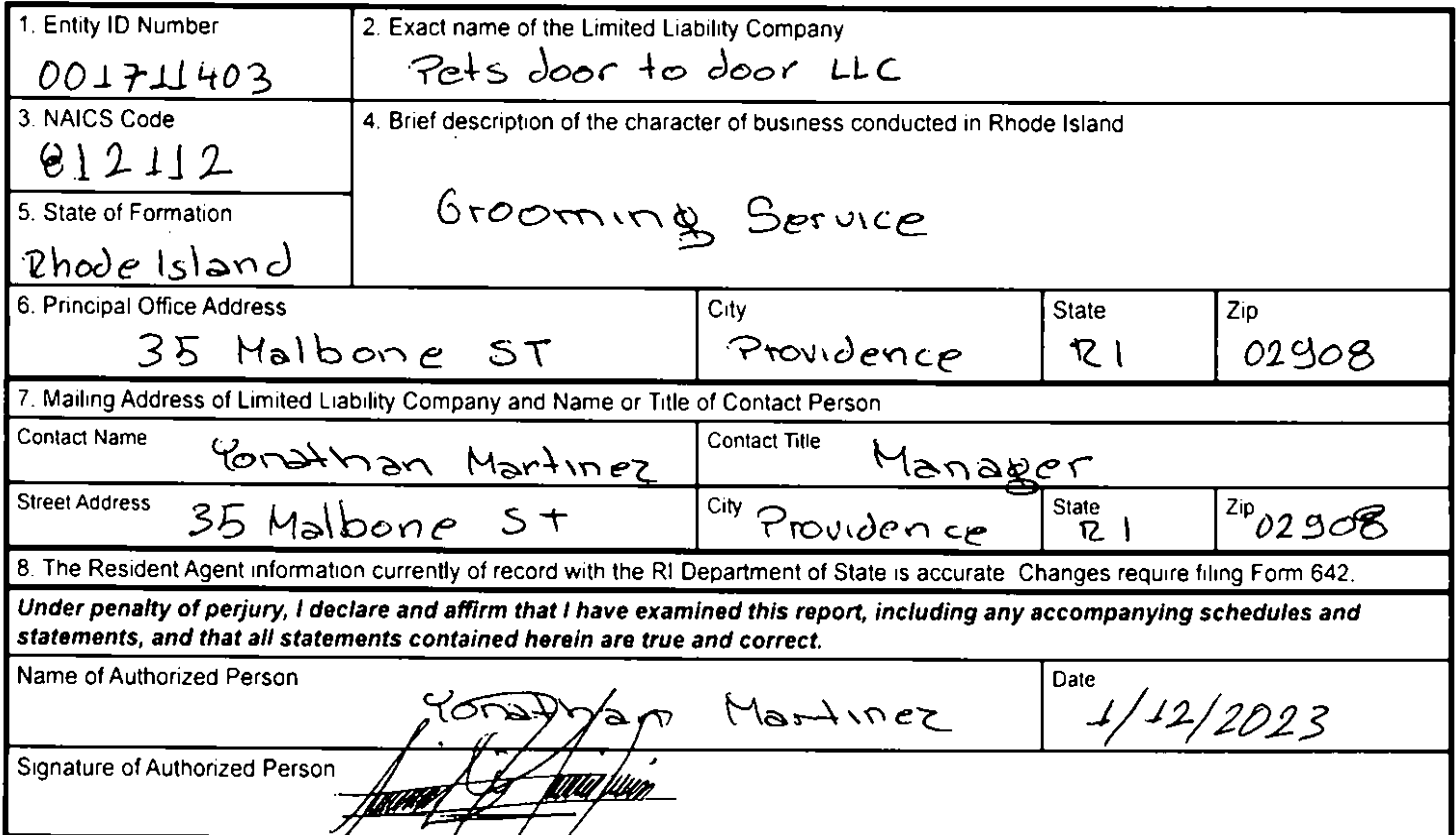 1. Entity ID Number
001711403
2. Exact name of the Limited Liability Company
Pets door to door LLC
3. NAICS Code
812112
4. Brief description of the character of business conducted in Rhode Island
Grooming Service
5. State of Formation
Rhode Island
6. Principal Office Address
35 Malbone ST
City
Providence
State
RI
Zip
02908
7. Mailing Address of Limited Liability Company and Name or Title of Contact Person
Contact Name
Yonathan Martinez
Contact Title
Manager
Street Address
35 Malbone St
City
Providence
State
RI
Zip
02908
8. The Resident Agent information currently of record with the RI Department of State is accurate Changes require filing Form 642.
Under penalty of perjury, I declare and affirm that I have examined this report, including any accompanying schedules and
statements, and that all statements contained herein are true and correct.
Name of Authorized Person
Yonathan Martinez
Date
1/12/2023
Signature of Authorized Person